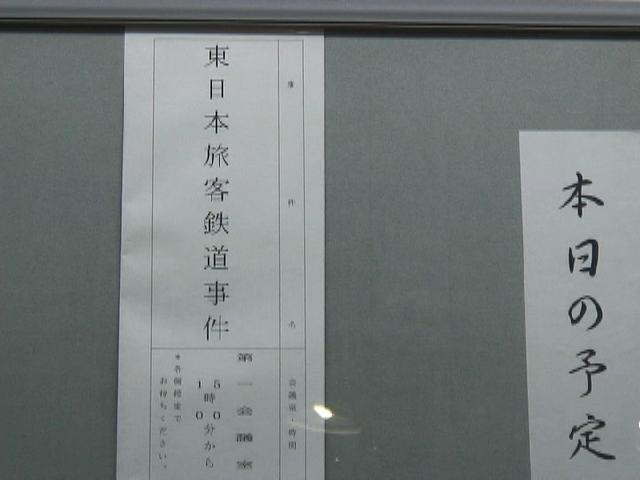 本日の予定
事件名
会議室・時間
東日本旅客鉄道事件
第一会議室
15時00分から
＊各側控室で
お待ちください。